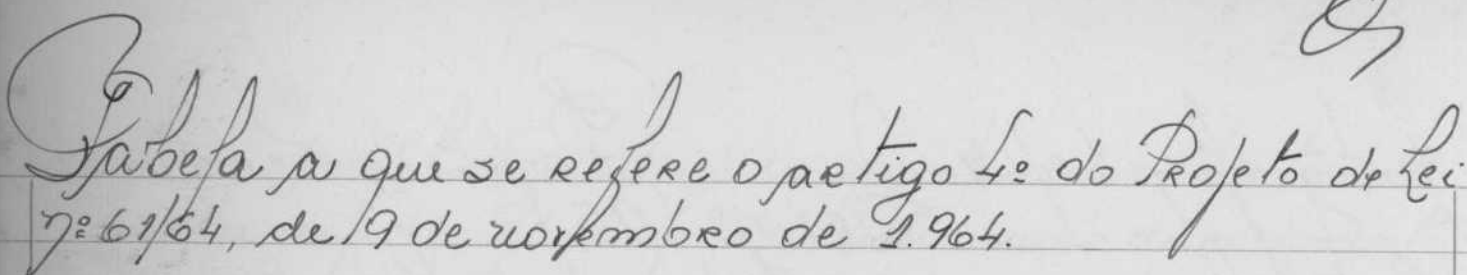 Tabela a que se refere o artigo 4º do Projeto de Lei
nº 61/64, de 19 de novembro de 1.964.